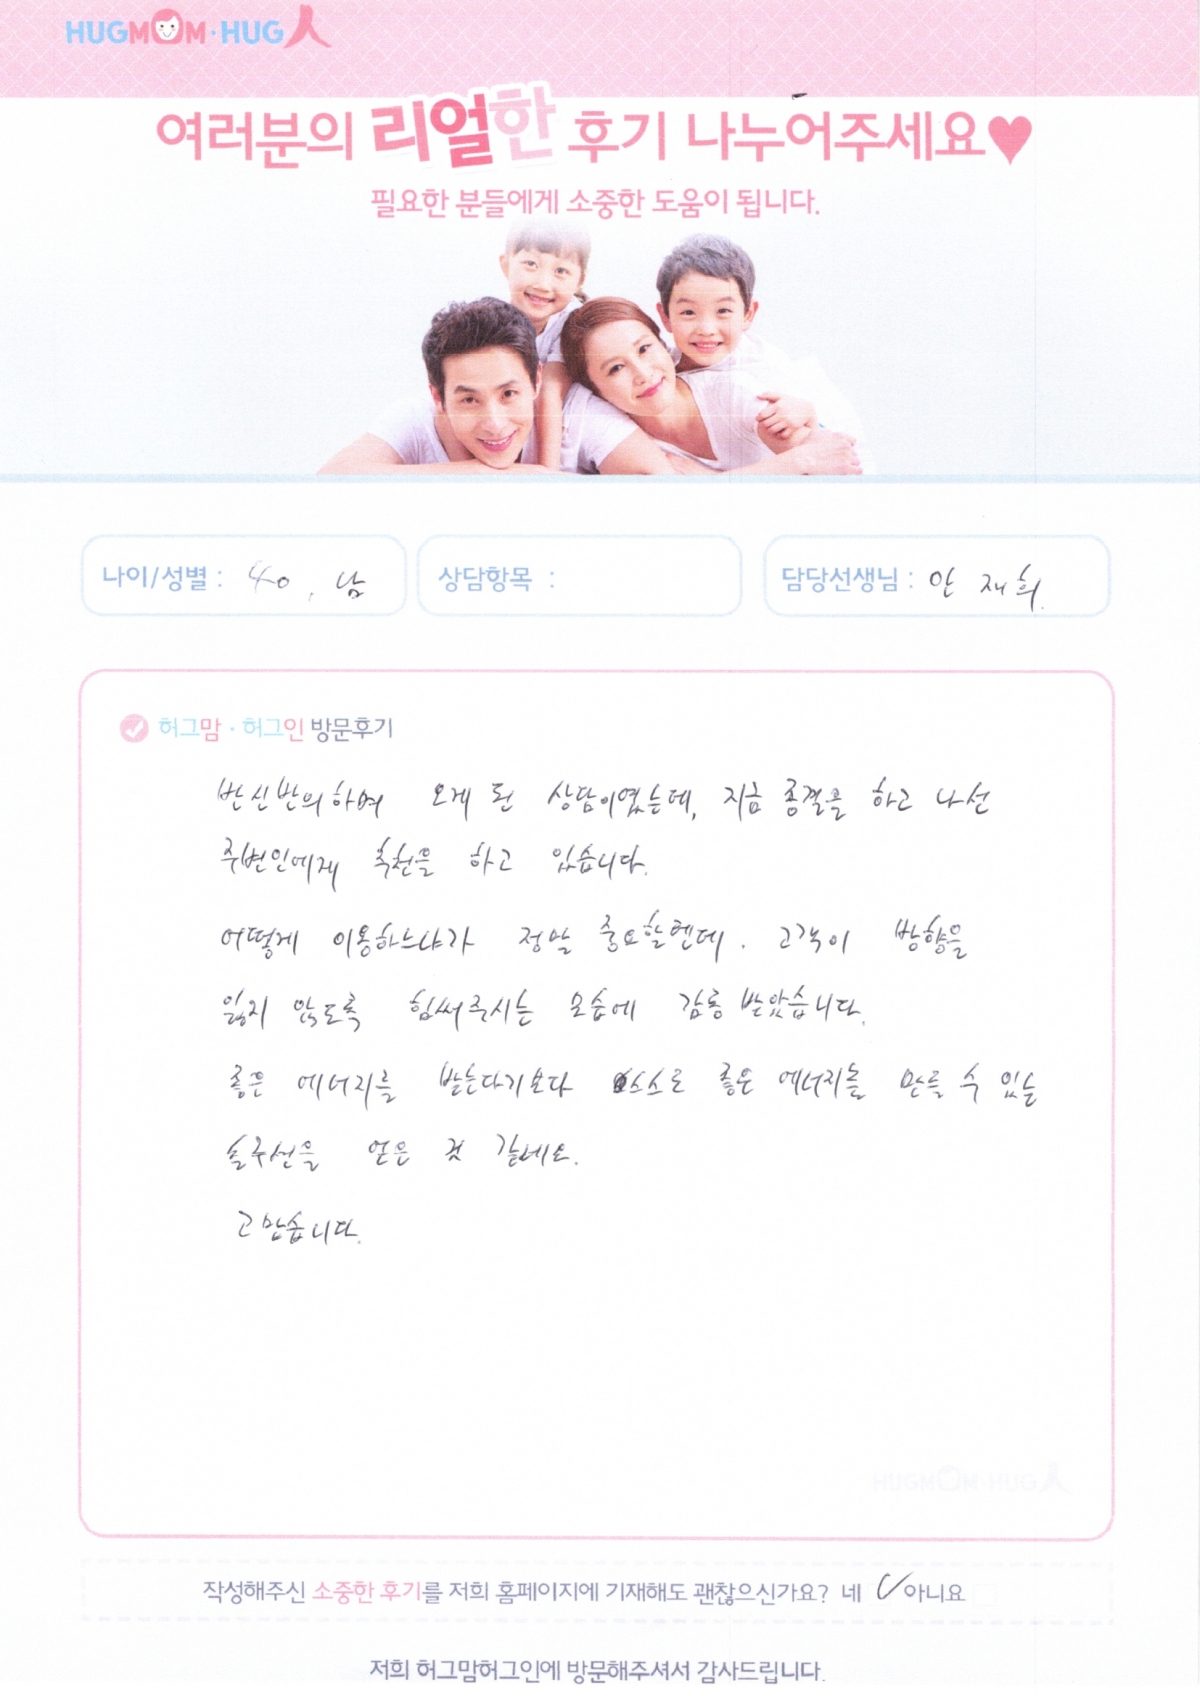 HUGMOM·HUG人
여러분의 리얼한 후기 나누어주세요♥
필요한 분들에게 소중한 도움이 됩니다.
나이/성별 : 40, 남
상담항목 :
담당선생님 : 안재희.
허그맘·허그인 방문후기
반신반의하며 오게 된 상담이였는데, 지금 종결을 하고 나선
주변인에게 추천을 하고 있습니다.
어떻게 이용하느냐가 정말 중요할텐데. 고객이 방향을
잃지 않도록 힘써주시는 모습에 감동 받았습니다.
좋은 에너지를 받는다기보다 스스로 좋은 에너지를 만들 수 있는
솔루션을 얻은 것 같네요.
고맙습니다.
HUGMOM·HUG人
작성해주신 소중한 후기를 저희 홈페이지에 기재해도 괜찮으신가요? 네 ✓ 아니요 □
저희 허그맘허그인에 방문해주셔서 감사드립니다.